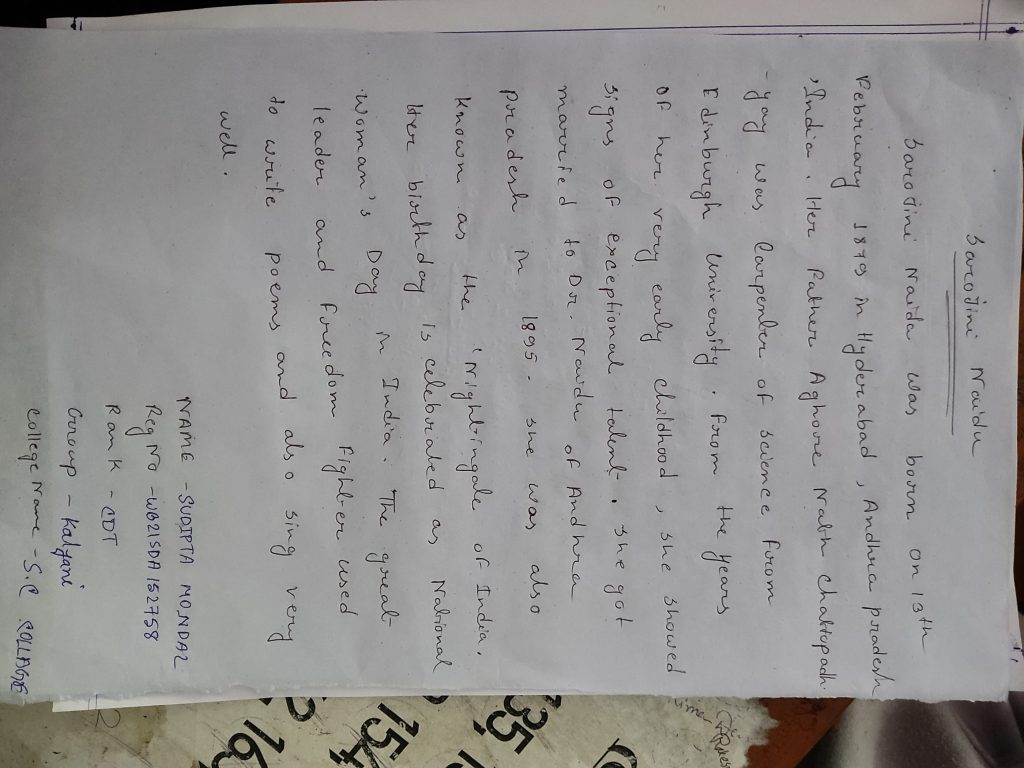 Sarojini Naidu
Sarojini Naidu was born on 13th
February 1879 in Hyderabad, Andhra pradesh
, India. Her Father Aghore Nath Chattopadh
-yay was Carpenter of science from
Edinburgh University. From the years
of her very early childhood, she showed
signs of exceptional talent. she got
married to Dr. Naidu of Andhra
Pradesh in 1895. she was also
known as the 'Nightingale of India.
Her birthday is celebrated as National
Woman's Day in India. The great
leader and freedom fighter used
to write poems and also sing very
well.
NAME - SUDIPTA MONDAL
Reg No - WB21SDA152758
Rank - CDT
Group - Kalyani
College Name - S.C COLLAGE
135,
154
16,